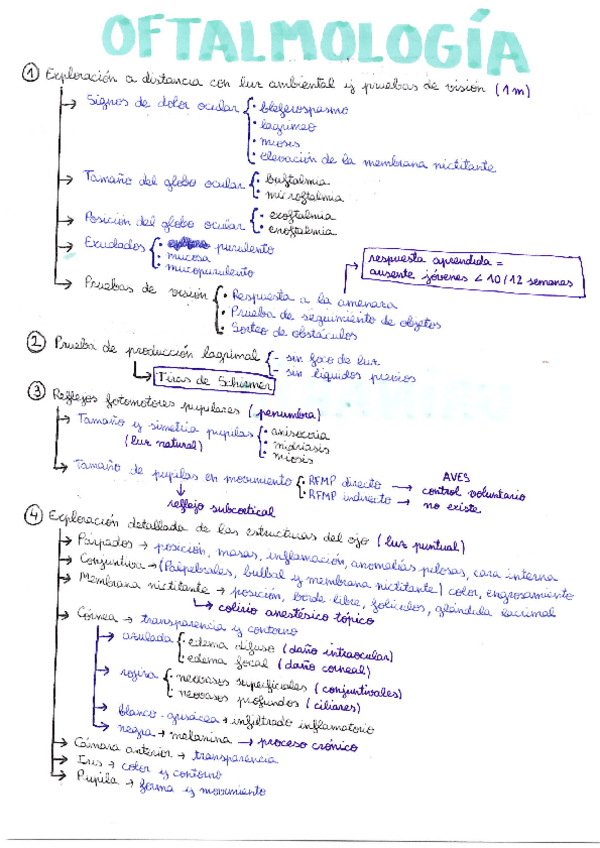 OFTALMOLOGÍA
① Exploración a distancia con luz ambiental y pruebas de visión (1m)
→ Signos de dolor ocular { · blefarospasmo
· lagrimeo
· miosis
· elevación de la membrana nictitante
→ Tamaño del globo ocular { · buftalmia
· microftalmia
→ Posición del globo ocular { · exoftalmia
· enoftalmia
→ Exudados { · purulento
· mucosa
· mucopurulento
respuesta aprendida =
ausente jóvenes < 10/12 semanas
→ Pruebas de visión { · Respuesta a la amenaza
· Prueba de seguimiento de objetos
· Sorteo de obstáculos
② Prueba de producción lagrimal { - sin foco de luz
- sin líquidos previos
→ Tiras de Schirmer
③ Reflejos fotomotores pupilares (penumbra)
→ Tamaño y simetría pupilas { · anisocoria
(luz natural) · midriasis
· miosis
→ Tamaño de pupilas en movimiento { · RFMP directo → control voluntario
· RFMP indirecto → no existe
AVES
↓
reflejo subcortical
④ Exploración detallada de las estructuras del ojo (luz puntual)
→ Párpados → posición, masas, inflamación, anomalías pilosas, cara interna
→ Conjuntiva → (Palpebrales, bulbal y membrana nictitante) color, engrosamiento
→ Membrana nictitante → posición, borde libre, folículos, glándula lacrimal
→ colirio anestésico tópico
→ Córnea → transparencia y contorno
→ azulada { · edema difuso (daño intraocular)
· edema focal (daño corneal)
→ rojiza { · neovasos superficiales (conjuntivales)
· neovasos profundos (ciliares)
→ blanco-grisácea → infiltrado inflamatorio
→ negra → melanina → proceso crónico
→ Cámara anterior → transparencia
→ Iris → color y contorno
→ Pupila → forma y movimiento